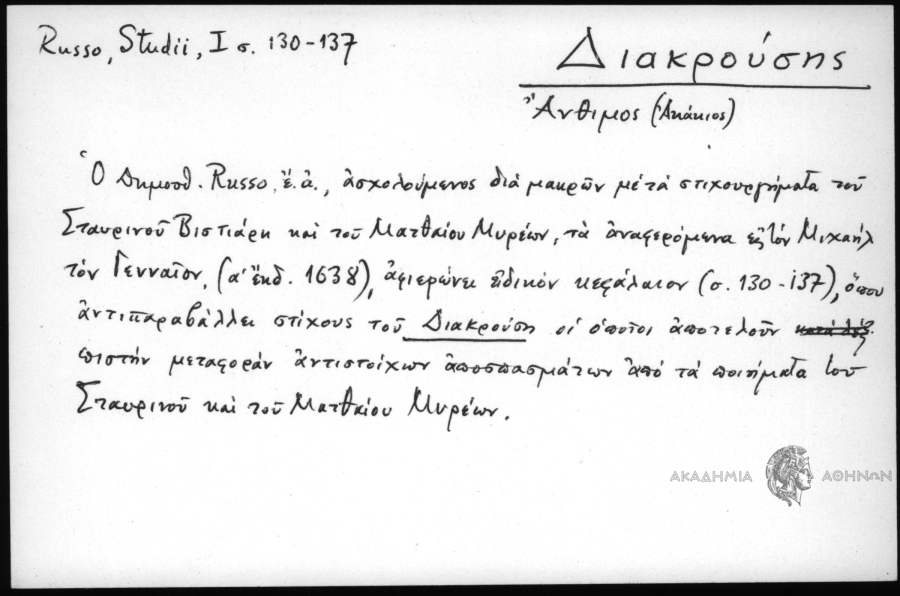 Russo, Studii, I σ. 130-137
Διακρούσης
Ἄνθιμος (Ἀκάκιος)
Ὁ Δημοσθ. Russo, ἔ.ἀ., ἀσχολούμενος διὰ μακρῶν μὲ τὰ στιχουργήματα τοῦ
Σταυρινοῦ Βιστιάρη καὶ τοῦ Ματθαίου Μυρέων, τὰ ἀναφερόμενα εἰς τὸν Μιχαὴλ
τὸν Γενναῖον, (α' ἔκδ. 1638), ἀφιερώνει εἰδικὸν κεφάλαιον (σ. 130-137), ὅπου
ἀντιπαραβάλλει στίχους τοῦ Διακρούση οἱ ὁποῖοι ἀποτελοῦν
πιστὴν μεταφορὰν ἀντιστοίχων ἀποσπασμάτων ἀπὸ τὰ ποιήματα τοῦ
Σταυρινοῦ καὶ τοῦ Ματθαίου Μυρέων.
ΑΚΑΔΗΜΙΑ ΑΘΗΝΩΝ